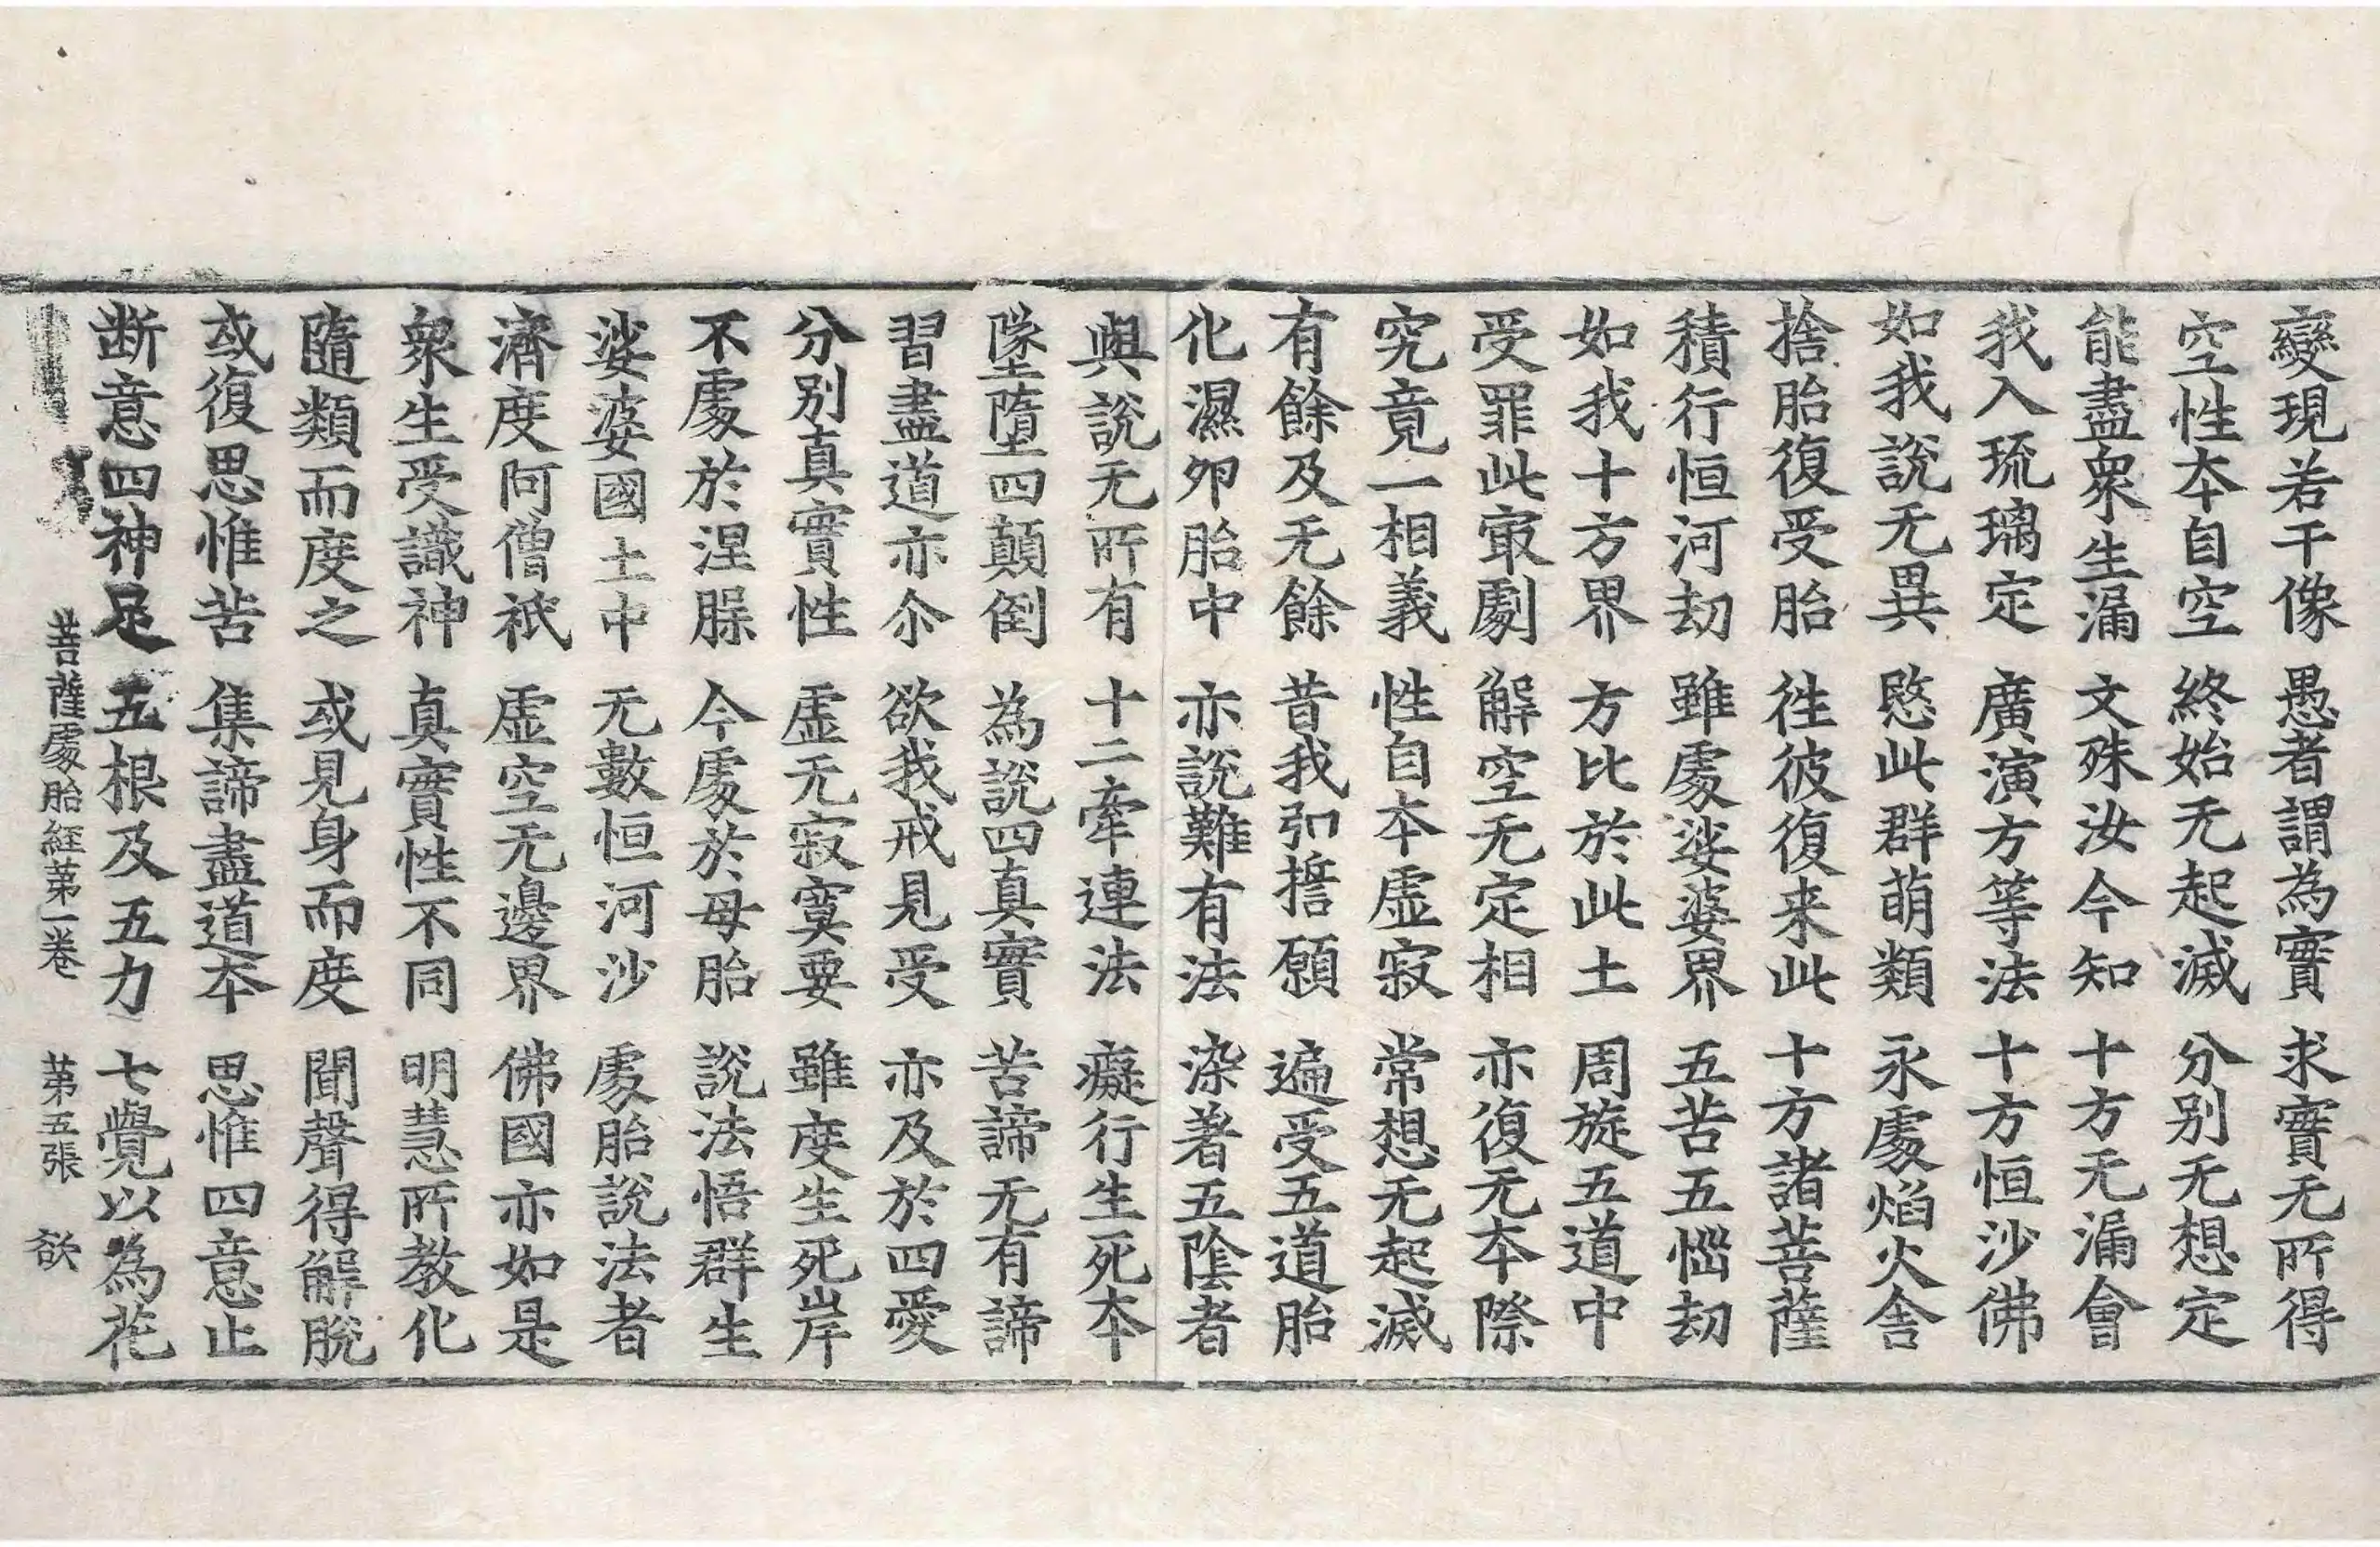 變現若干像 愚者謂為實 求實无所得
空性本自空 終始无起滅 分别无想定
能盡衆生漏 文殊汝今知 十方无漏會
我入琉璃定 廣演方等法 十方恒沙佛
如我說无異 愍此群萌類 永處焰火舍
捨胎復受胎 往彼復来此 十方諸菩薩
積行恒河劫 雖處娑婆界 五苦五惱劫
如我十方界 方比於此土 周旋五道中
受罪此㝡劇 解空无定相 亦復无本際
究竟一相義 性自本虛寂 常想无起滅
有餘及无餘 昔我弘誓願 遍受五道胎
化濕卵胎中 亦説難有法 染著五陰者
與説无所有 十二牽連法 癡行生死本
墜墮四顛倒 為説四真實 苦諦无有諦
習盡道亦尒 欲我戒見受 亦及於四愛
分别真實性 虛无寂寞要 雖度生死岸
不處於涅槃 今處於母胎 説法悟群生
娑婆國土中 无數恒河沙 處胎説法者
濟度阿僧祇 虛空无邊界 佛國亦如是
衆生受識神 真實性不同 明慧所教化
隨類而度之 或見身而度 聞聲得解脫
或復思惟苦 集諦盡道本 思惟四意止
断意四神足 五根及五力 七覺以為花
菩薩處胎經第一卷 第五張 欲